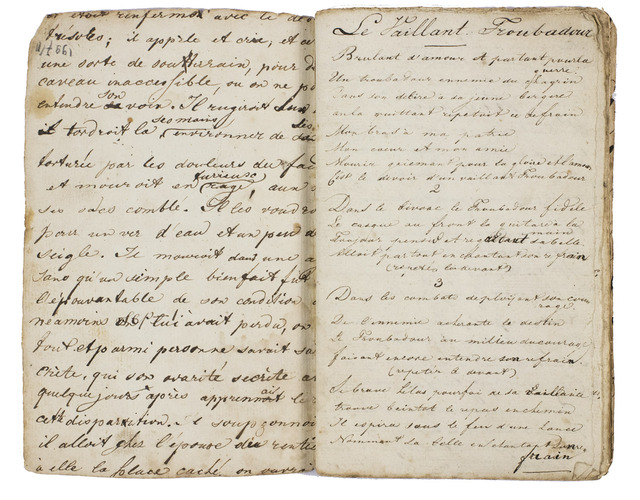 et étoit renfermé avec le de
tresors; il appele et crie, et c
N 7 661
une sorte de souterrain, pour d
caveau inaccessible, ou on ne po
entendre son voix. Il rugiroit
il tordroit la ses mains environner de
torturée par les douleurs de fai
et mouroit en furieuse rage, aux
ses sacs comblé. Il les voud
pour un ver d'eau et un peu d
seigle. Il mouroit dans une a
sans qu'un simple bienfait fut
l'épouvantable de son condition
néamoins lui avoit perdu, on
tout et parmi personne savoit sa
chète, qui son avarité secrète a
quelque jours après apprennent le
cette disparition. il soupçonnoi
il alloit chez l'épouse du rentie
à elle la place caché on ouvroi
Le Vaillant Troubadour
Brulant d'amour et partant pour la guerre
Un troubadour ennemie du chagrin
Dans son délire à sa jeune bergère
en la quittant répétoit ce refrain
Mon bras à ma patrie
Mon cœur et mon amie
Mourir gaiement pour la gloire et l'amour
C'est le devoir d'un vaillant Troubadour
2
Dans le bivoac le Troubadour fidèle
Le casque au front la guitare à la main
Toujour pensif et regrettant sa belle
Alloit partout en chantant son refrain
(répéter ci devant)
3
Dans les combats deployant son courage
De l'ennemie acherante le destin
Le Troubadour au milieu du carnage
faisant encore intendre son refrain.
(repeter ci devant)
Ce brave hélas pour foi de sa vaillance
trouve beintot le repos en chemin
Il expira sous le fer d'une lance
Nommant sa belle en chantant refrain